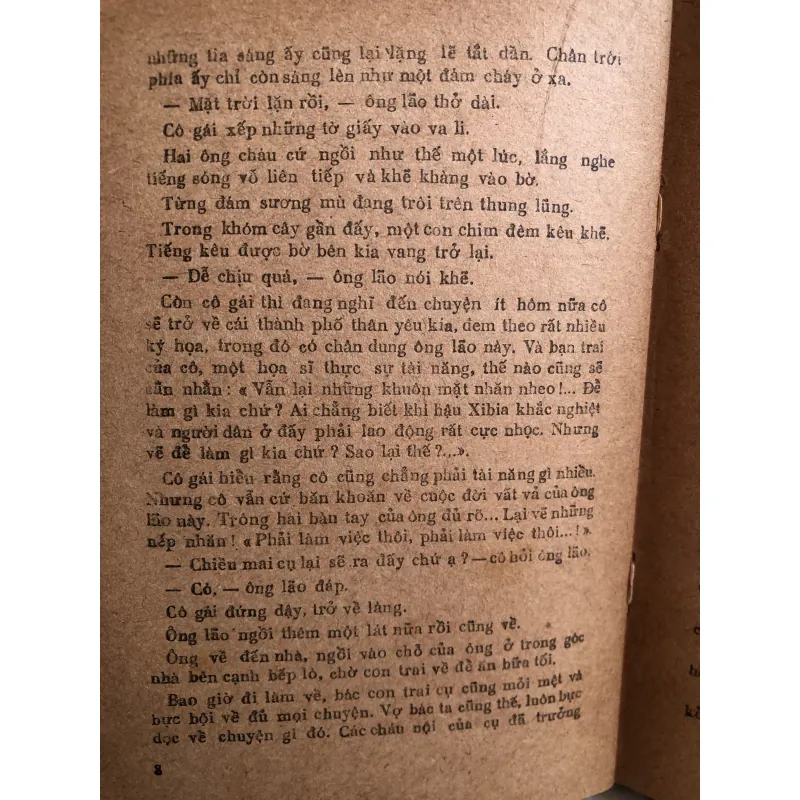 những tia sáng ấy cũng lại lặng lẽ tắt dần. Chân trời
phía ấy chỉ còn sáng lên như một đám cháy ở xa.
— Mặt trời lặn rồi, — ông lão thở dài.
Cô gái xếp những tờ giấy vào va li.
Hai ông cháu cứ ngồi như thế một lúc, lắng nghe
tiếng sóng vỗ liên tiếp và khẽ khàng vào bờ.
Từng đám sương mù đang trôi trên thung lũng.
Trong khóm cây gần đấy, một con chim đêm kêu khẽ.
Tiếng kêu được bờ bên kia vang trở lại.
— Dễ chịu quá, — ông lão nói khẽ.
Còn cô gái thì đang nghĩ đến chuyện ít hôm nữa cô
sẽ trở về cái thành phố thân yêu kia, đem theo rất nhiều
ký họa, trong đó có chân dung ông lão này. Và bạn trai
của cô, một họa sĩ thực sự tài năng, thế nào cũng sẽ
cằn nhằn : « Vẫn lại những khuôn mặt nhăn nheo !... Để
làm gì kia chứ ? Ai chẳng biết khí hậu Xibia khắc nghiệt
và người dân ở đấy phải lao động rất cực nhọc. Nhưng
vẽ để làm gì kia chứ ? Sao lại thế ?...».
Cô gái hiểu rằng cô cũng chẳng phải tài năng gì nhiều.
Nhưng cô vẫn cứ băn khoăn về cuộc đời vất vả của ông
lão này. Trông hai bàn tay của ông đủ rõ... Lại vẽ những
nếp nhăn ! « Phải làm việc thôi, phải làm việc thôi...!».
— Chiều mai cụ lại sẽ ra đấy chứ ạ ? — cô hỏi ông lão.
— Có, — ông lão đáp.
Cô gái đứng dậy, trở về làng.
Ông lão ngồi thêm một lát nữa rồi cũng về.
Ông về đến nhà, ngồi vào chỗ của ông ở trong góc
nhà bên cạnh bếp lò, chờ con trai về để ăn bữa tối.
Bao giờ đi làm về, bác con trai cụ cũng mỏi mệt và
bực bội về đủ mọi chuyện. Vợ bác ta cũng thế, luôn bực
dọc về chuyện gì đó. Các cháu nội của cụ đã trưởng
8